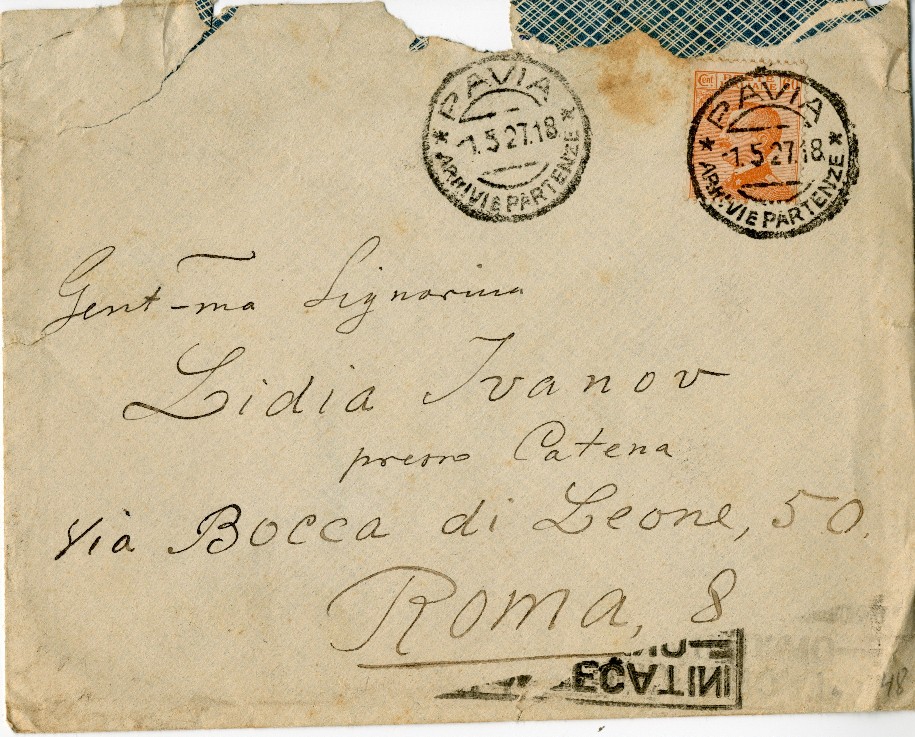 PAVIA
1.5 27.18
ARRIVI E PARTENZE
Cent
PAVIA
1.5 27.18
ARRIVI E PARTENZE
Gent-ma Signorina
Lidia Ivanov
presso Catena
Via Bocca di Leone, 50.
Roma, 8
48